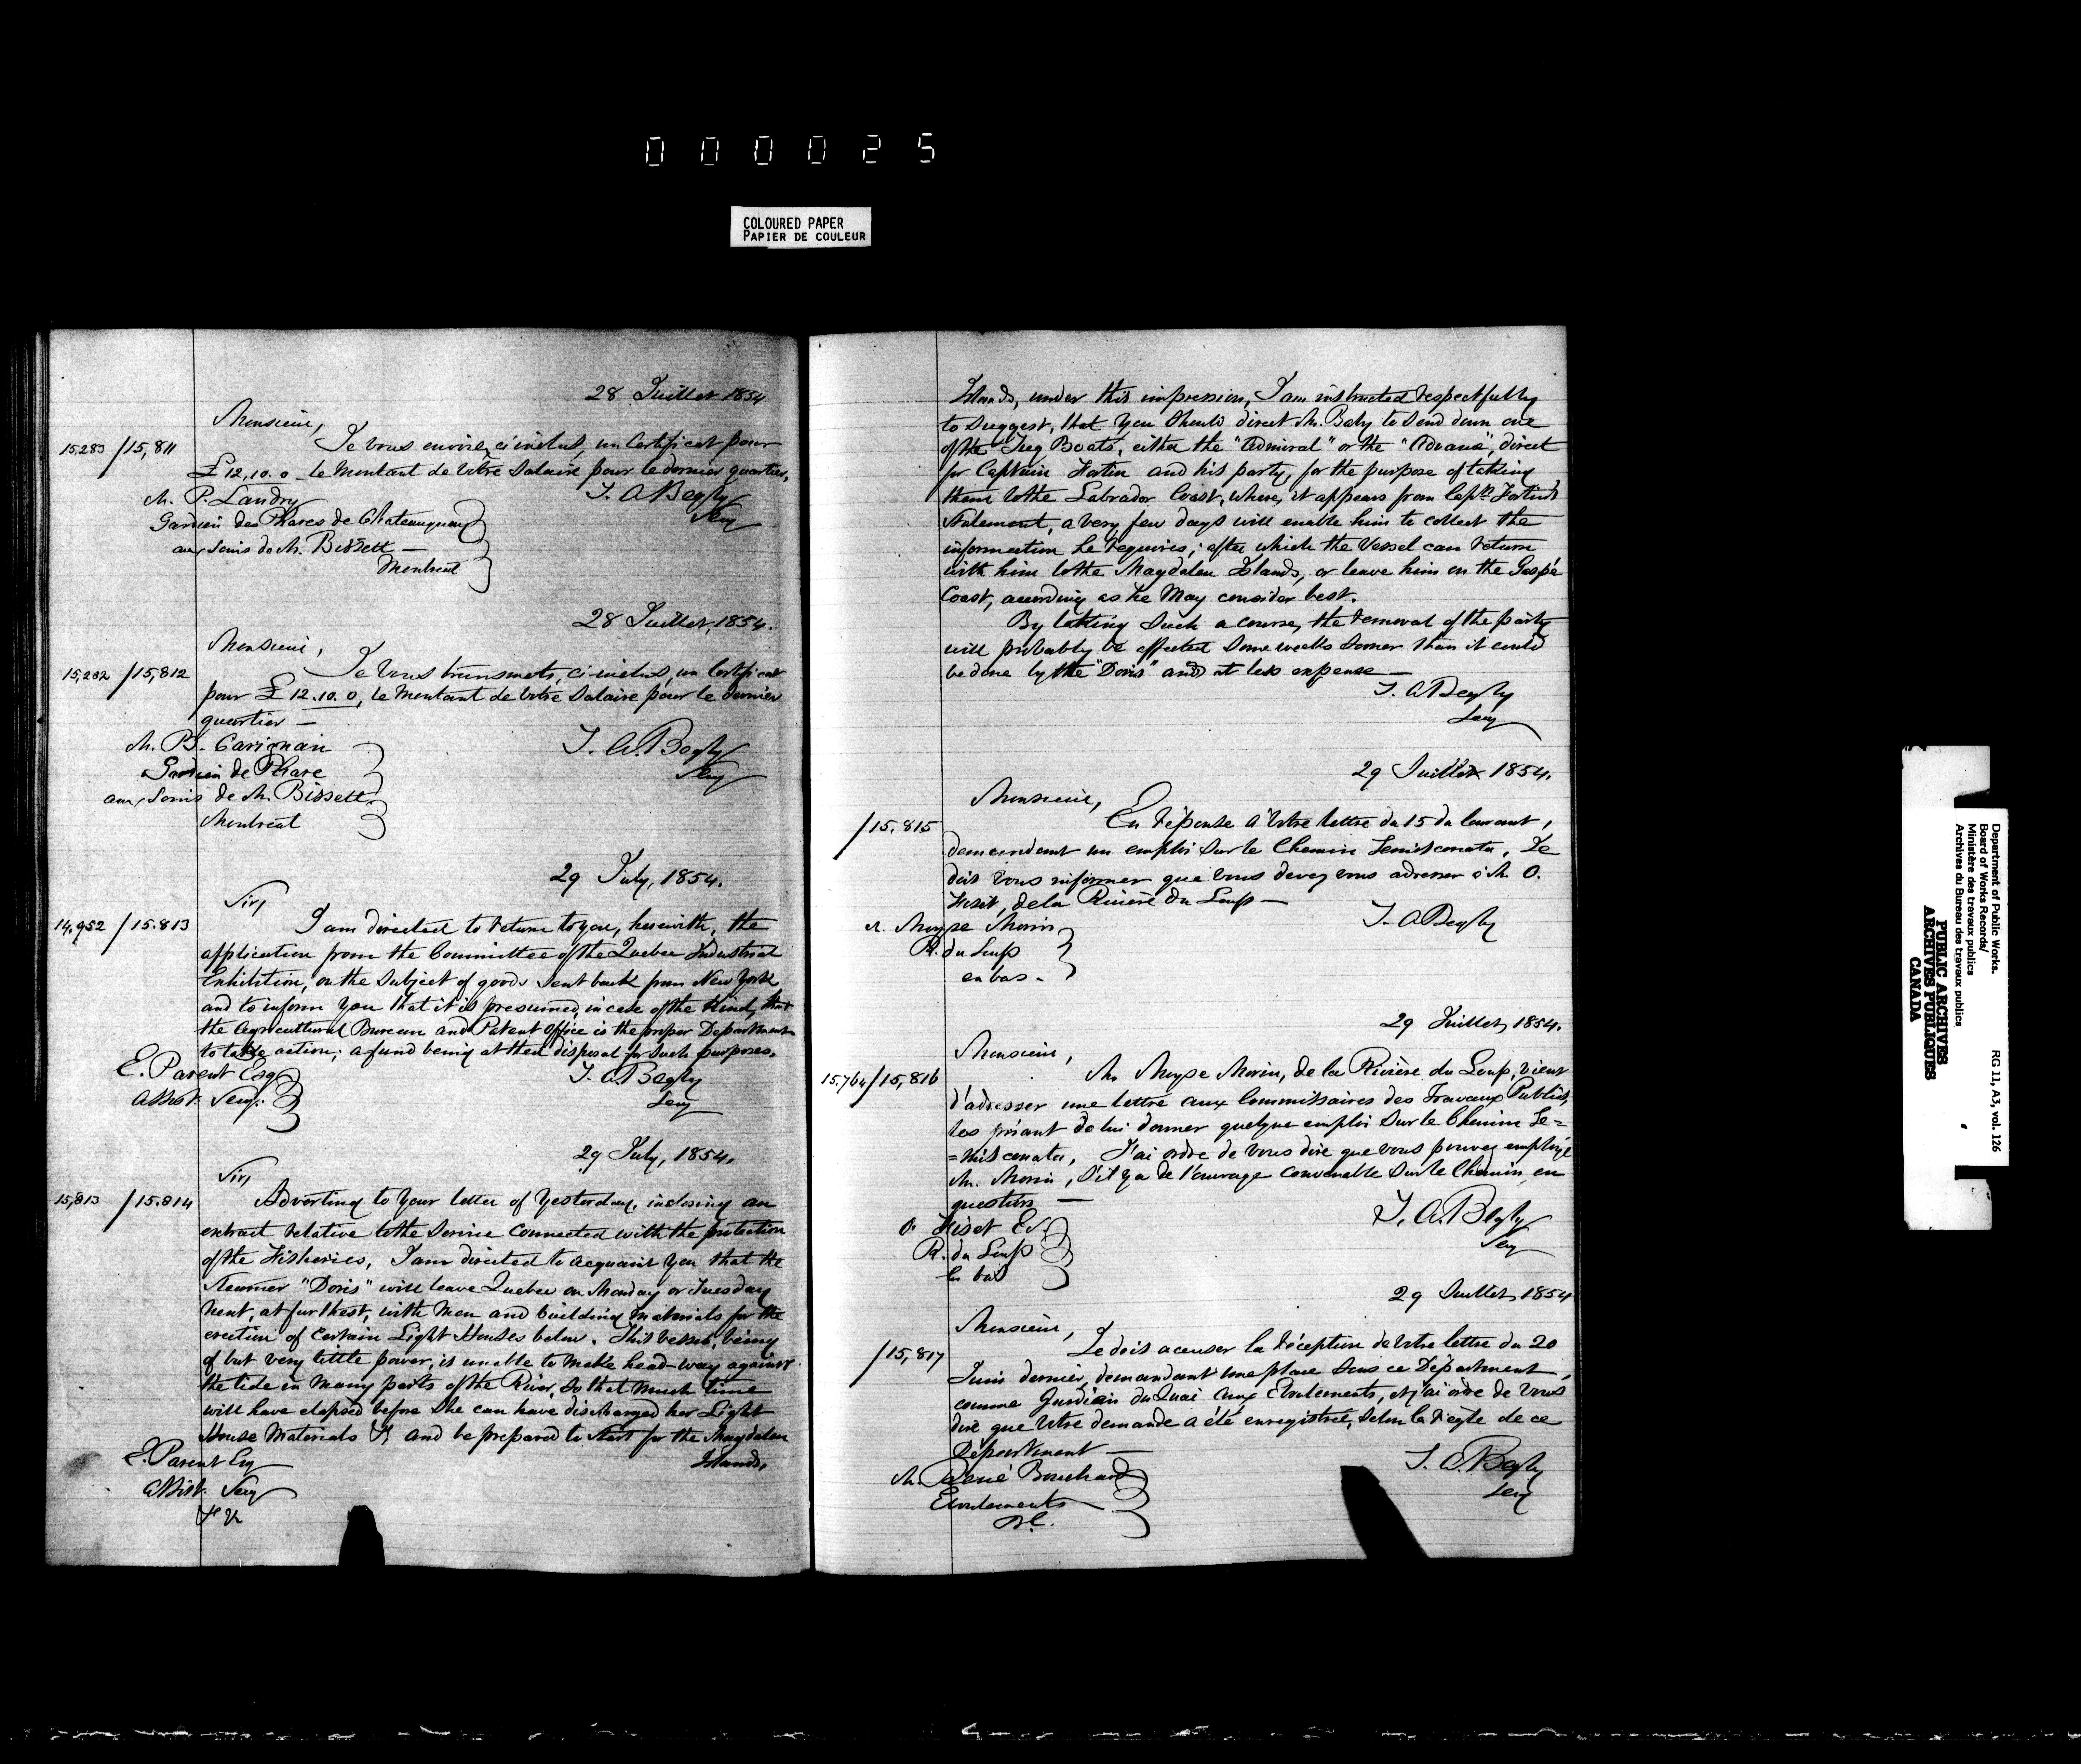 000025
COLOURED PAPER
PAPIER DE COULEUR
28 Juillet 1854
Monsieur,
15283 /15,811
Je vous envoie, ci inclus, un Certificat pour
£12,10.0 le montant de votre Salaire pour le dernier quartier,
M. P. Landry
T. A. Begly
Secy
Gardien des Phares de Chateauguay
aux soins de M. Bissett —
Montreal
28 Juillet, 1854.
Monsieur,
15,282 /15,812
Je vous transmets, ci-inclus, un Certificat
pour £12.10.0, le montant de votre Salaire pour le dernier
quartier —
M. B. Carignan
T. A. Begly
Secy
Gardien de Phare
aux soins de M. Bissett.
Montreal
29 July, 1854.
Sir,
14,952 /15.813
I am directed to return to you, herewith, the
application from the Committee of the Quebec Industrial
Exhibition, on the subject of goods sent back from New York
and to inform you that it is presumed, in case of the kind, that
the Agricultural Bureau and Patent Office is the proper Department
to take action; a fund being at their disposal for such purposes.
E. Parent Esq
T. A. Begly
Secy
Assist. Secy.
29 July, 1854.
Sir,
15,813 /15.814
Adverting to your letter of yesterday, inclosing an
extract relative to the Service connected with the protection
of the Fisheries, I am directed to acquaint you that the
Steamer "Doris" will leave Quebec on Monday or Tuesday
next, at furthest, with men and building materials for the
erection of certain Light Houses below. This vessel, being
of but very little power, is unable to make head-way against
the tide in many parts of the River, so that much time
will have elapsed before she can have discharged her Light
House Materials & and be prepared to start for the Magdalen
E. Parent Esq
Islands,
Assist. Secy
Islands, under this impression, I am instructed respectfully
to suggest, that you should direct Mr. Baby to send down one
of the Tug Boats, either the "Admiral" or the "Advance", direct
for Captain Fortin and his party, for the purpose of taking
them to the Labrador Coast, where, it appears from Captn. Fortin's
statement, a very few days will enable him to collect the
information he requires; after which the vessel can return
with him to the Magdalen Islands, or leave him on the Gaspé
Coast, according as he may consider best.
By taking such a course, the removal of the party
will probably be effected some weeks sooner than it could
be done by the "Doris" and at less expense —
T. A. Begly
Secy
29 Juillet 1854.
Monsieur,
/15.815
En réponse à votre lettre du 15 du Courant,
demandant un emploi sur le Chemin Temisconata, Je
dois vous informer que vous devez vous adresser à M. O.
Fiset, de la Rivière du Loup —
T. A. Begly
M. Moyse Morin
R. du Loup
en bas.
29 Juillet, 1854.
Monsieur,
15.764/15,816
M. Moyse Morin, de la Rivière du Loup, vient
d'adresser une lettre aux Commissaires des Travaux Publics,
les priant de lui donner quelque emploi sur le Chemin Te=
=misconata, J'ai ordre de vous dire que vous pouvez employé
M. Morin, s'il y a de l'ouvrage convenable sur le Chemin en
question —
T. A. Begly
Secy
O. Fiset Esq.
R. du Loup
En bas
29 Juillet, 1854
Monsieur,
/15,817
Je dois accuser la réception de votre lettre du 20
Juin dernier, demandant une place sous ce Département,
comme Gardien du Quai aux Eboulements, et j'ai ordre de vous
dire que votre demande a été enregistrée, selon la règle de ce
Département —
T. A. Begly
Secy
M. René Bouchard
Eboulements
Department of Public Works.
Board of Works Records/
Ministère des travaux publics
Archives du Bureau des travaux publics
RG 11, A3, vol. 126
PUBLIC ARCHIVES
ARCHIVES PUBLIQUES
CANADA